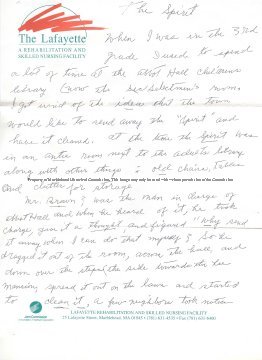 The Spirit
The Lafayette
A REHABILITATION AND
SKILLED NURSING FACILITY
When I was in the 3rd
grade I used to spend
a lot of time at the Abbot Hall Childrens
library (now the Selectmen's room.
I got wind of the idea that the town
would like to send away the "Spirit" and
have it cleaned. at the time the Spirit was
in an ante room next to the adults library
along with other things: old chairs, tables
and clutter for storage
Mr. Brown was the man in charge of
Abbot Hall and when he heard of it, he took
charge, gave it a thought and figured "Why send
it away when I can do that myself So he
dragged it out of the room, across the hall, and
down over the steps (the side towards the Lee
mansion, spread it out on the lawn and started
to clean it, a few neighbors took notice
LAFAYETTE REHABILITATION AND SKILLED NURSING FACILITY
25 Lafayette Street, Marblehead, MA 01945 • (781) 631-4535 • Fax (781) 631-6400